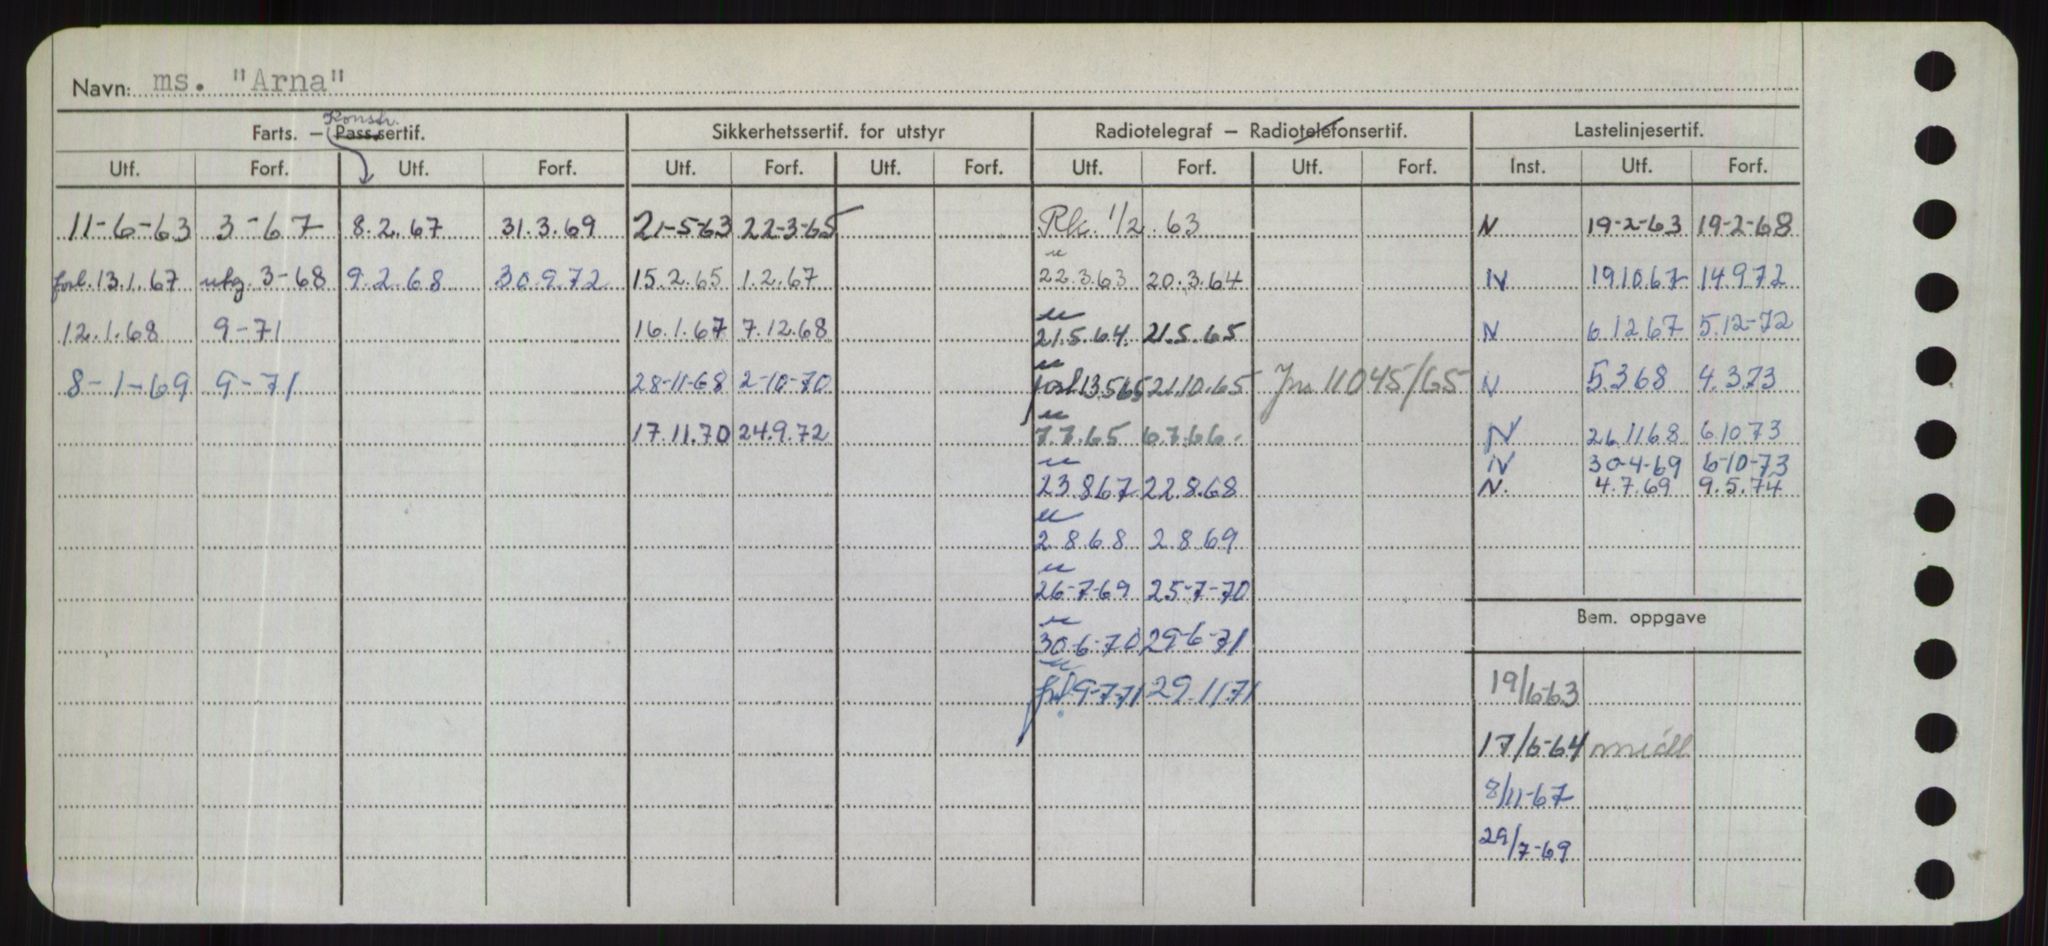 Navn: ms. "Arna"
Konstr.
Farts. — Pass.sertif. Sikkerhetssertif. for utstyr Radiotelegraf — Radiotelefonsertif. Lastelinjesertif.
Utf. Forf. Utf. Forf. Utf. Forf. Utf. Forf. Utf. Forf. Utf. Forf. Inst. Utf. Forf.
11-6-63 3-67 8.2.67 31.3.69 21-5-63 22-3-65 Rk. 1/2.63 N 19-2-63 19-2-68
forl. 13.1.67 utg. 3-68 9.2.68 30.9.72 15.2.65 1.2.67 22.3.63 20.3.64 N 19.10.67 14.9.72
12.1.68 9-71 16.1.67 7.12.68 21.5.64 21.5.65 N 6.12.67 5.12-72
8-1-69 9-71 28-11-68 2-10-70 forl 13.5.65 21.10.65 Jnr 11045/65 N 5.3.68 4.3.73
17.11.70 24.9.72 7.7.65 6.7.66. N 26.11.68 6.10.73
N 30-4-69 6-10-73
23.8.67 22.8.68 N. 4.7.69 9.5.74
2.8.68 2.8.69
26-7-69 25-7-70
Bem. oppgave
30-6-70 29-6-71
9-7-71 29.11.71 19/6-63
17/6-64
8/11-67
29/7-69